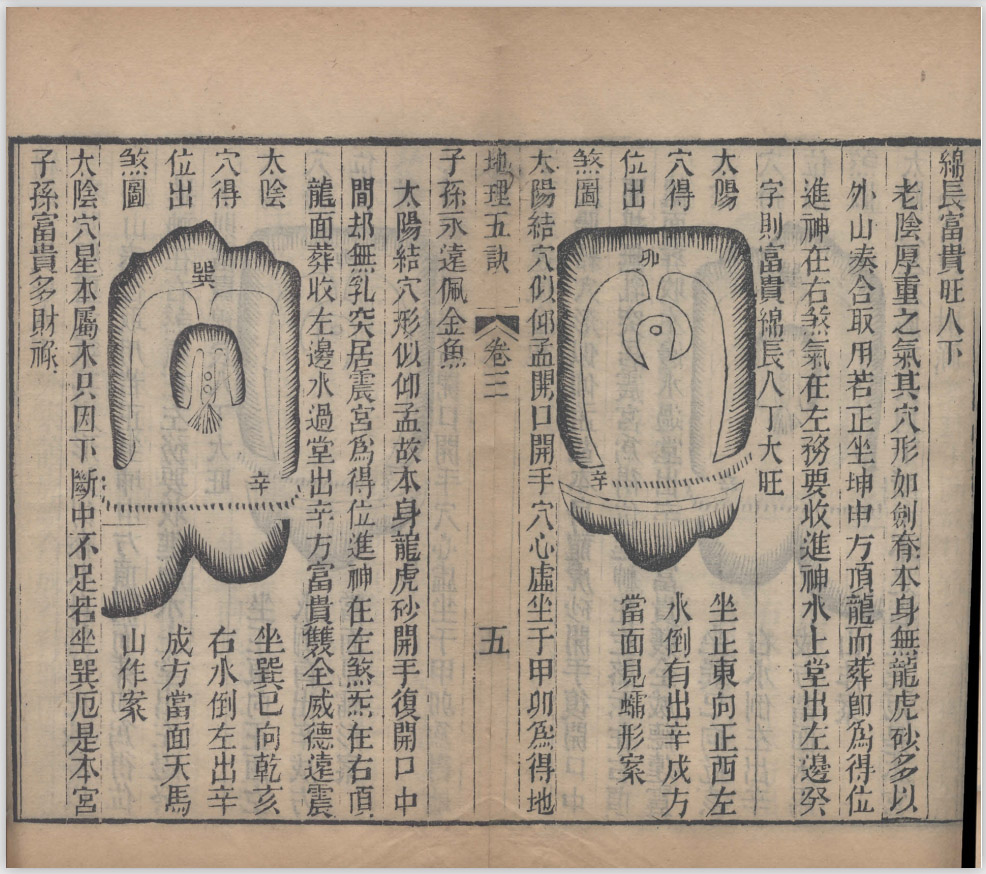 綿長富貴旺人丁
老陰厚重之氣其穴形如劍脊本身無龍虎砂多以
外山奏合取用若正坐坤申方頂龍而葬卽爲得位
進神在右煞氣在左務要收進神水上堂出左邊癸
字則富貴綿長人丁大旺
太陽
穴得
位出
煞圖
卯
辛
坐正東向正西左
水倒右出辛戍方
當面見蠕形案
太陽結穴似仰盂開口開手穴心虛坐于甲卯爲得地
地理五訣
卷三
五
子孫永遠佩金魚
太陽結穴形似仰盂故本身龍虎砂開手復開口中
間却無乳突居震宮爲得位進神在左煞炁在右頂
龍面葬收左邊水過堂出辛方富貴雙全威德遠震
太陰
穴得
位出
煞圖
巽
辛
坐巽巳向乾亥
右水倒左出辛
戍方當面天馬
山作案
太陰穴星本屬木只因下斷中不足若坐巽厄是本宮
子孫富貴多財祿